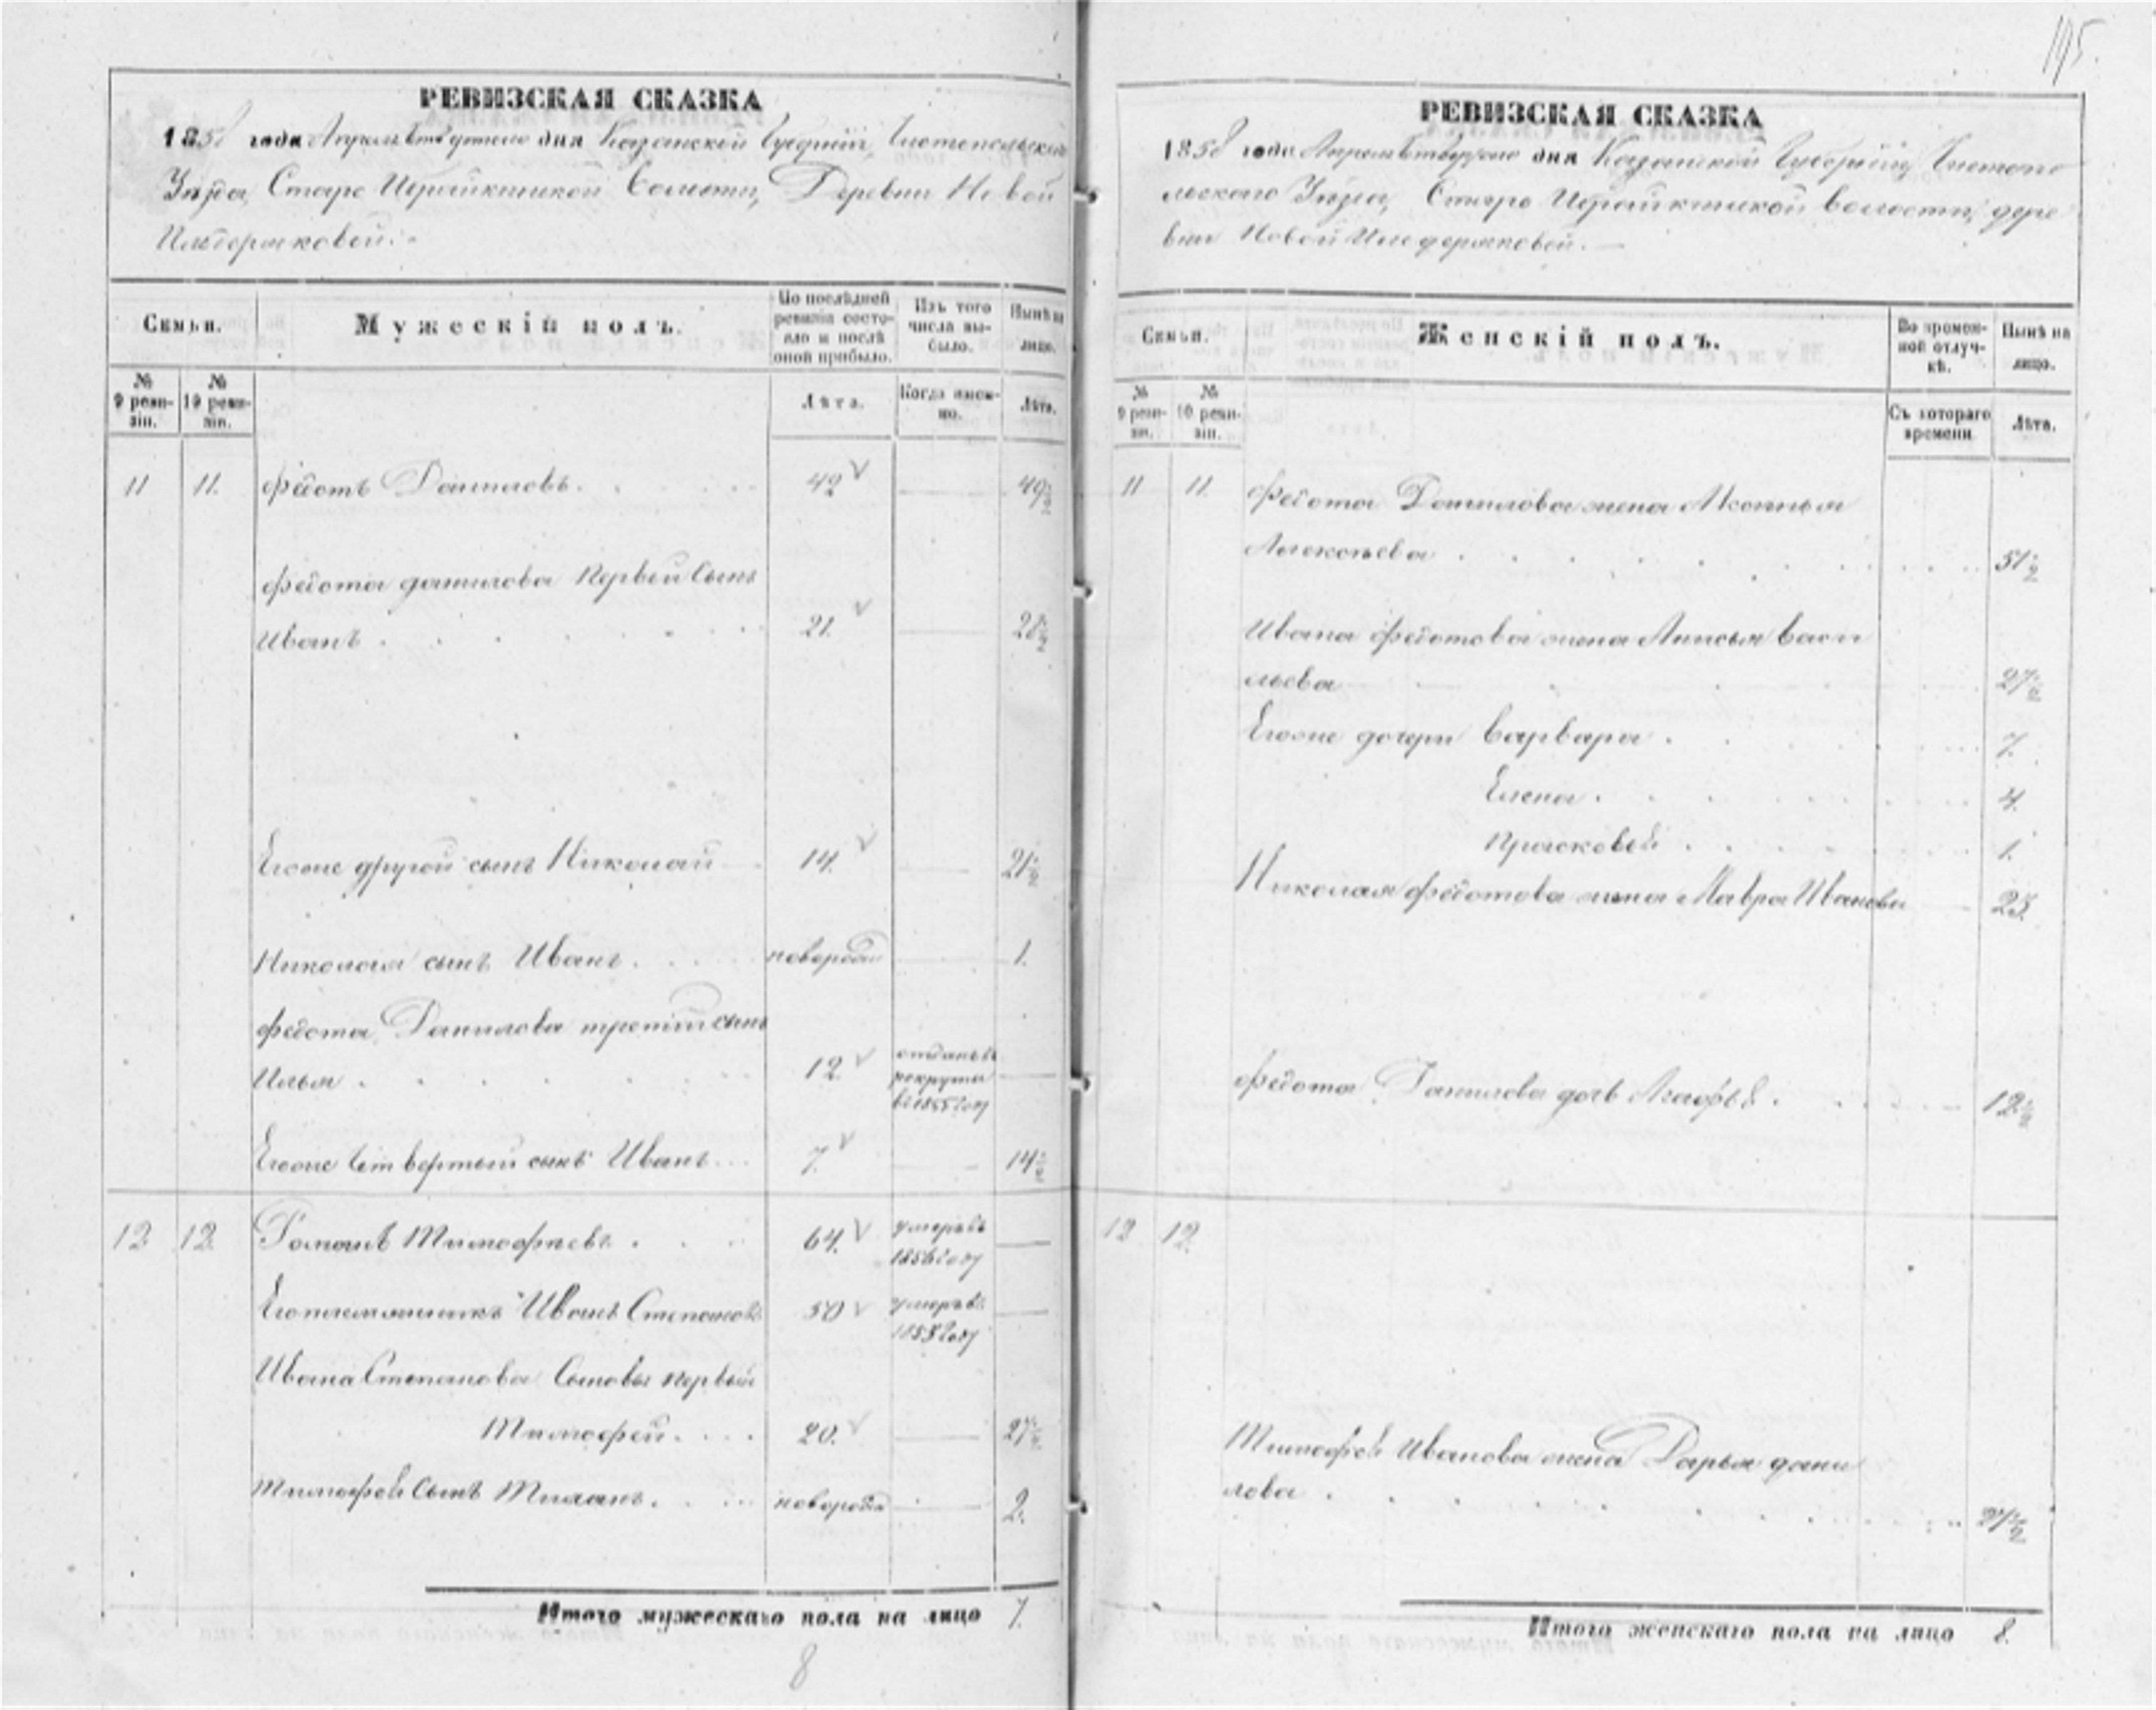 195.
РЕВИЗСКАЯ СКАЗКА
1858 года Апреля дня Казанской Губерніи, Чистопольскаго
Уѣзда, Старо Ибрайкинской Волости, Деревни Новой
Ильдеряковой.
Семьи.
Мужескій полъ.
По послѣдней ревизіи состояло и послѣ оной прибыло.
Изъ того числа выбыло.
Нынѣ на лицо.
№ 9 ревизіи.
№ 10 ревизіи.
Лѣта.
Когда именно.
Лѣта.
11 11. Федотъ Даниловъ. 42 49½
Федота Данилова первый сынъ
Иванъ. 21. 28½
Егоже другой сынъ Николай 14. 21½
Николая сынъ Иванъ. новорожд 1.
Федота Данилова третій сынъ
Илья. 12. отданъ въ рекруты въ 1855 году
Егоже Четвертый сынъ Иванъ 7. 14½
12 12 Романъ Тимофѣевъ. 64. умеръ въ 1856 году
Его племянникъ Иванъ Степановъ 50 умеръ въ году
Ивана Степанова Сыновья первый
Тимофей. 20. 27½
Тимофея Сынъ новорожд 2.
Итого мужескаго пола на лицо 7.
8
РЕВИЗСКАЯ СКАЗКА
1858 года Апреля дня Казанской Губерніи, Чистопо
льскаго Уѣзда, Старо Ибрайкинской волости, дере
вни Новой Ильдеряковой.
Семьи.
Женскій полъ.
Во временной отлучкѣ.
Нынѣ на лицо.
№ 9 ревизіи.
№ 10 ревизіи.
Съ котораго времени
Лѣта.
11 11. Федота Данилова жена
Алексѣева. 51½
Ивана Федотова жена Анисья Васи
льева 27½
Егоже дочери Варвара. 7.
Елена. 4.
Прасковья. 1.
Николая Федотова жена Мавра Иванова 25.
Федота Данилова дочь Агафья. 12½
12 12.
Тимофея Иванова жена Дарья Дани
лова. 27½
Итого женскаго пола на лицо 8.